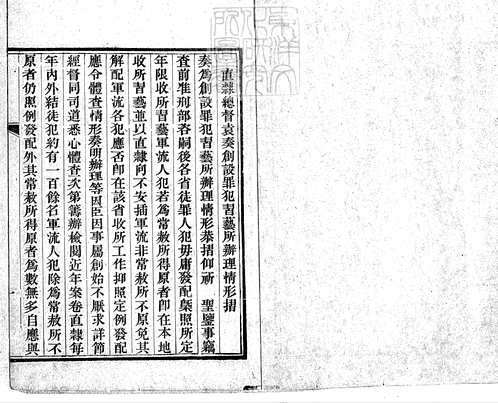 直隸總督袁奏創設罪犯習藝所辦理情形摺
奏為創設罪犯習藝所辦理情形恭摺仰祈　聖鑒事竊
查前准刑部咨嗣後各省徒罪人犯毋庸發配槩照所定
年限收所習藝軍流人犯若為常赦所得原者即在本地
收所習藝並以直隸向不安插軍流非常赦所不原免其
解配軍流各犯應否即在該省收所工作抑照定例發配
應令體查情形奏明辦理等因臣因事屬創始不厭求詳節
經督同司道悉心體查次第籌辦檢閱近年案卷直隸每
年內外結徒犯約有一百餘名軍流人犯除為常赦所不
原者仍照例發配外其常赦所得原者為數無多自應與